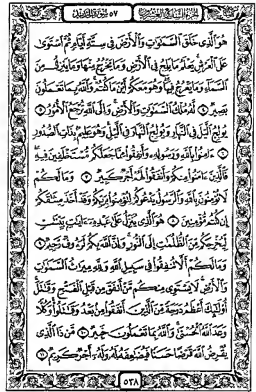 سورة الحديد ٥٧ الجزء السابع والعشرون
هُوَ ٱلَّذِى خَلَقَ ٱلسَّمَٰوَٰتِ وَٱلۡأَرۡضَ فِى سِتَّةِ أَيَّامٖ ثُمَّ ٱسۡتَوَىٰ
عَلَى ٱلۡعَرۡشِۖ يَعۡلَمُ مَا يَلِجُ فِى ٱلۡأَرۡضِ وَمَا يَخۡرُجُ مِنۡهَا وَمَا يَنزِلُ مِنَ
ٱلسَّمَآءِ وَمَا يَعۡرُجُ فِيهَاۖ وَهُوَ مَعَكُمۡ أَيۡنَ مَا كُنتُمۡۚ وَٱللَّهُ بِمَا تَعۡمَلُونَ
بَصِيرٞ ٤ لَّهُۥ مُلۡكُ ٱلسَّمَٰوَٰتِ وَٱلۡأَرۡضِۚ وَإِلَى ٱللَّهِ تُرۡجَعُ ٱلۡأُمُورُ ٥
يُولِجُ ٱلَّيۡلَ فِى ٱلنَّهَارِ وَيُولِجُ ٱلنَّهَارَ فِى ٱلَّيۡلِۚ وَهُوَ عَلِيمُۢ بِذَاتِ ٱلصُّدُورِ
٦ ءَامِنُواْ بِٱللَّهِ وَرَسُولِهِۦ وَأَنفِقُواْ مِمَّا جَعَلَكُم مُّسۡتَخۡلَفِينَ فِيهِۖ
فَٱلَّذِينَ ءَامَنُواْ مِنكُمۡ وَأَنفَقُواْ لَهُمۡ أَجۡرٞ كَبِيرٞ ٧ وَمَا لَكُمۡ
لَا تُؤۡمِنُونَ بِٱللَّهِ وَٱلرَّسُولُ يَدۡعُوكُمۡ لِتُؤۡمِنُواْ بِرَبِّكُمۡ وَقَدۡ أَخَذَ مِيثَٰقَكُمۡ
إِن كُنتُم مُّؤۡمِنِينَ ٨ هُوَ ٱلَّذِى يُنَزِّلُ عَلَىٰ عَبۡدِهِۦٓ ءَايَٰتِۭ بَيِّنَٰتٖ
لِّيُخۡرِجَكُم مِّنَ ٱلظُّلُمَٰتِ إِلَى ٱلنُّورِۚ وَإِنَّ ٱللَّهَ بِكُمۡ لَرَءُوفٞ رَّحِيمٞ ٩
وَمَا لَكُمۡ أَلَّا تُنفِقُواْ فِى سَبِيلِ ٱللَّهِ وَلِلَّهِ مِيرَٰثُ ٱلسَّمَٰوَٰتِ
وَٱلۡأَرۡضِۚ لَا يَسۡتَوِى مِنكُم مَّنۡ أَنفَقَ مِن قَبۡلِ ٱلۡفَتۡحِ وَقَٰتَلَۚ
أُوْلَٰٓئِكَ أَعۡظَمُ دَرَجَةٗ مِّنَ ٱلَّذِينَ أَنفَقُواْ مِنۢ بَعۡدُ وَقَٰتَلُواْۚ وَكُلّٗا
وَعَدَ ٱللَّهُ ٱلۡحُسۡنَىٰۚ وَٱللَّهُ بِمَا تَعۡمَلُونَ خَبِيرٞ ١٠ مَّن ذَا ٱلَّذِى
يُقۡرِضُ ٱللَّهَ قَرۡضًا حَسَنٗا فَيُضَٰعِفَهُۥ لَهُۥ وَلَهُۥٓ أَجۡرٞ كَرِيمٞ ١١
٥٣٨